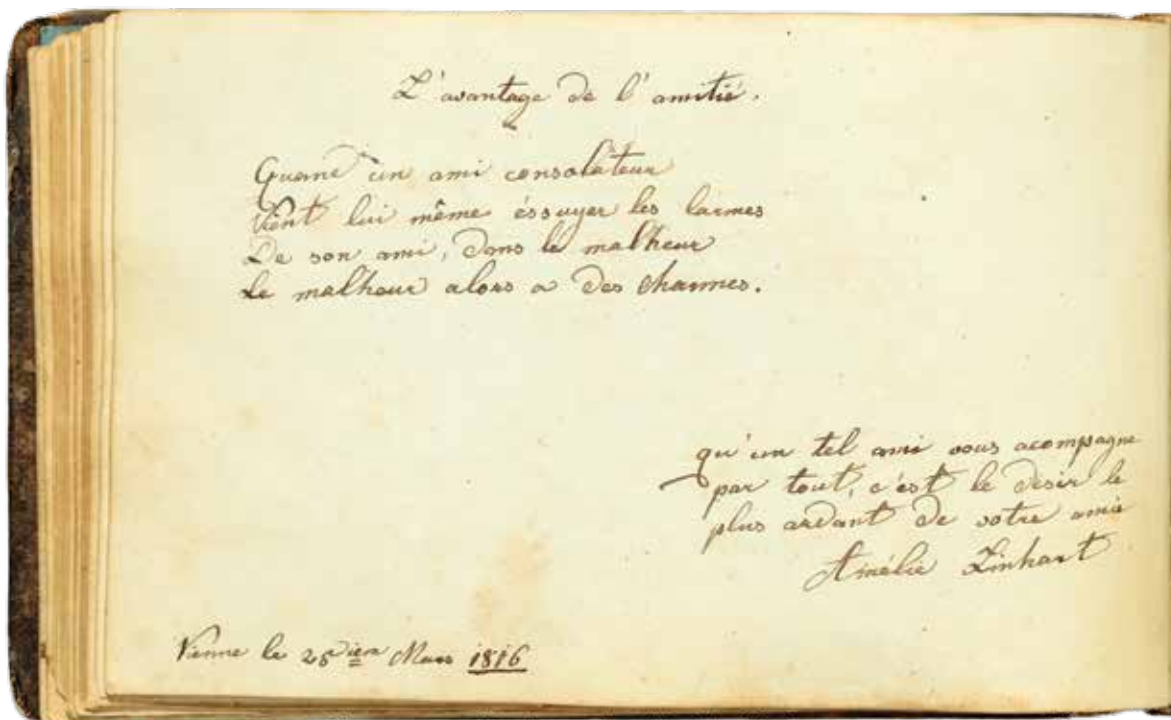 L'avantage de l'amitié.
Quand un ami consolateur
Vient lui même éssuyer les larmes
De son ami, dans le malheur
Le malheur alors a des charmes.
qu'un tel ami vous acompagne
par tout, c'est le desir le
plus ardant de votre amie
Amélie Linhart
Vienne le Mars 1816